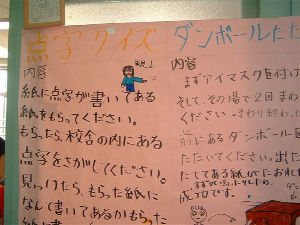 点字クイズ
内容
紙に点字が書いてある
紙をもらってください。
もらったら、校舎の内にある
点字をさがしてください。
見つけたら、もらった紙に
なんて書いてあるかもらった
ダンボールたた
内容
まずアイマスクを付け
そして、その場で2回まわ
ください。まわり終わっ
前にあるダンボールを
たたいてください。出た
たててある紙がたおれ
成功です。